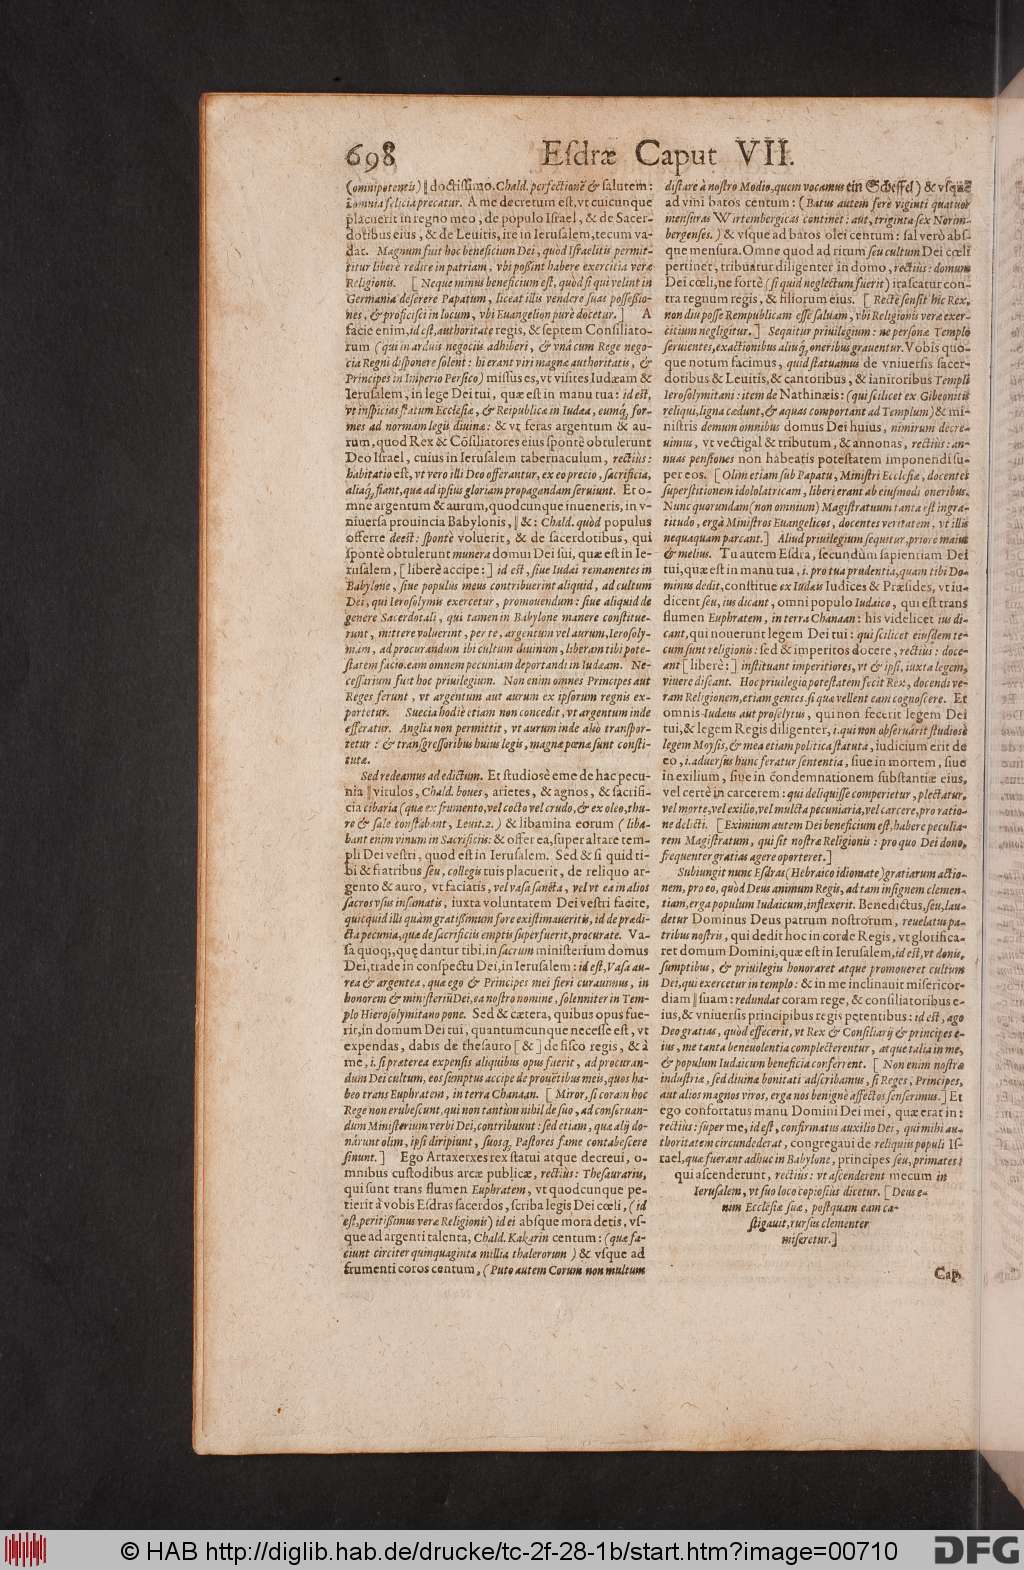 698 Esdræ Caput VII.
(omnipotentis)‖doctissimo. Chald. perfectionē & salutem:
omnia felicia precatur. A me decretum est, vt cuicunque
placuerit in regno meo, de populo Israel, & de Sacer-
dotibus eius, & de Leuitis, ire in Ierusalem, tecum va-
dat. Magnum fuit hoc beneficium Dei, quòd Israelitis permit-
titur liberè redire in patriam, vbi possint habere exercitia veræ
Religionis. [Neque minus beneficium est, quòd si qui velint in
Germania deserere Papatum, liceat illis vendere suas possessio-
nes, & proficisci in locum, vbi Euangelion purè docetur.] A
facie enim, id est, authoritate regis, & septem Consiliato-
rum (qui in arduis negociis adhiberi, & vnà cum Rege nego-
cia Regni disponere solent: hi erant viri magnæ authoritatis, &
Principes in Imperio Persico) missus es, vt visites Iudæam &
Ierusalem, in lege Dei tui, quæ est in manu tua: id est,
vt inspicias statum Ecclesiæ, & Reipublicæ in Iudæa, eumq́, for-
mes ad normam legis diuinæ: & vt feras argentum & au-
rum, quod Rex & Cōsiliatores eius spontè obtulerunt
Deo Israel, cuius in Ierusalem tabernaculum, rectius:
habitatio est, vt vero illi Deo offerantur, ex eo precio, sacrificia,
aliaq́, fiant, quæ ad ipsius gloriam propagandam seruiunt. Et o-
mne argentum & aurum, quodcunque inueneris, in v-
niuersa prouincia Babylonis,‖&: Chald. quòd populus
offerre deest: spontè voluerit, & de sacerdotibus, qui
spontè obtulerunt munera domui Dei sui, quæ est in Ie-
rusalem, [liberè accipe:] id est, siue Iudæi remanentes in
Babylone, siue populus meus contribuerint aliquid, ad cultum
Dei, qui Ierosolymis exercetur, promouendum: siue aliquid de
genere Sacerdotali, qui tamen in Babylone manere constitue-
runt, mittere voluerint, per te, argentum vel aurum, Ierosoly-
mam, ad procurandum ibi cultum diuinum, liberam tibi pote-
statem facio, eam omnem pecuniam deportandi in Iudæam. Ne-
cessarium fuit hoc priuilegium. Non enim omnes Principes aut
Reges ferunt, vt argentum aut aurum ex ipsorum regnis ex-
portetur. Suecia hodiè etiam non concedit, vt argentum inde
efferatur. Anglia non permittit, vt aurum inde aliò transpor-
tetur: & transgressoribus huius legis, magnæ pœnæ sunt consti-
tutæ.
Sed redeamus ad edictum. Et studiosè eme de hac pecu-
nia‖vitulos, Chald. boues, arietes, & agnos, & sacrifi-
cia cibaria (quæ ex frumento, vel cocto vel crudo, & ex oleo, thu-
re & sale constabant, Leuit. 2.) & libamina eorum (liba-
bant enim vinum in Sacrificiis: & offer ea, super altare tem-
pli Dei vestri, quod est in Ierusalem. Sed & si quid ti-
bi & fratribus seu, collegis tuis placuerit, de reliquo ar-
gento & auro, vt faciatis, vel vasa sancta, vel vt ea in alios
sacros vsus insumatis, iuxta voluntatem Dei vestri facite,
quicquid illi quàm gratissimum fore existimaueritis, id de prædi-
cta pecunia, quæ de sacrificiis emptis superfuerit, procurate. Va-
sa quoq;, quę dantur tibi, in sacrum ministerium domus
Dei, trade in conspectu Dei, in Ierusalem: id est, Vasa au-
rea & argentea, quæ ego & Principes mei fieri curauimus, in
honorem & ministeriū Dei, ea nostro nomine, solenniter in Tem-
plo Hierosolymitano pone. Sed & cætera, quibus opus fue-
rit, in domum Dei tui, quantumcunque necesse est, vt
expendas, dabis de thesauro [&] de fisco regis, & à
me, i. si præterea expensis aliquibus opus fuerit, ad procuran-
dum Dei cultum, eos sumptus accipe de prouētibus meis, quos ha-
beo trans Euphratem, in terra Chanaan. [Miror, si coram hoc
Rege non erubescunt, qui non tantùm nihil de suo, ad conseruan-
dum Ministerium verbi Dei, contribuunt: sed etiam, quæ alij do-
nârunt olim, ipsi diripiunt, suosq́, Pastores fame contabescere
sinunt.] Ego Artaxerxes rex statui atque decreui, o-
mnibus custodibus arcæ publicæ, rectius: Thesaurariis,
qui sunt trans flumen Euphratem, vt quodcunque pe-
tierit à vobis Esdras sacerdos, scriba legis Dei cœli, (id
est, peritissimus veræ Religionis) id ei absque mora detis, vs-
que ad argenti talenta, Chald. Kakarin centum: (quæ fa-
ciunt circiter quinquaginta millia thalerorum) & vsque ad
frumenti coros centum, (Puto autem Corum non multum
distare à nostro Modio, quem vocamus ein Scheffel) & vsque
ad vini batos centum: (Batus autem ferè viginti quatuor
mensuras Wirtembergicas continet: aut, triginta sex Norim-
bergenses.) & vsque ad batos olei centum: sal verò abs-
que mensura. Omne quod ad ritum seu cultum Dei cœli
pertinet, tribuatur diligenter in domo, rectius: domum
Dei cœli, ne fortè (si quid neglectum fuerit) irascatur con-
tra regnum regis, & filiorum eius. [Rectè sensit hic Rex,
non diu posse Rempublicam esse saluam, vbi Religionis veræ exer-
citium negligitur.] Sequitur priuilegium: ne personæ Templo
seruientes, exactionibus aliisq́, oneribus grauentur. Vobis quo-
que notum facimus, quid statuamus de vniuersis sacer-
dotibus & Leuitis, & cantoribus, & ianitoribus Templi
Ierosolymitani: item de Nathinæis: (qui scilicet ex Gibeonitis
reliqui, ligna cædunt, & aquas comportant ad Templum) & mi-
nistris demum omnibus domus Dei huius, nimirum decre-
uimus, vt vectigal & tributum, & annonas, rectius: an-
nuas pensiones non habeatis potestatem imponendi su-
per eos. [Olim etiam sub Papatu, Ministri Ecclesiæ, docentes
superstitionem idololatricam, liberi erant ab eiusmodi oneribus.
Nunc quorundam (non omnium) Magistratuum tanta est ingra-
titudo, ergà Ministros Euangelicos, docentes veritatem, vt illis
nequaquam parcant.] Aliud priuilegium sequitur, priore maius
& melius. Tu autem Esdra, secundùm sapientiam Dei
tui, quæ est in manu tua, i. pro tua prudentia, quam tibi Do-
minus dedit, constitue ex Iudæis Iudices & Præsides, vt iu-
dicent seu, ius dicant, omni populo Iudaico, qui est trans
flumen Euphratem, in terra Chanaan: his videlicet ius di-
cant, qui nouerunt legem Dei tui: qui scilicet eiusdem te-
cum sunt religionis: sed & imperitos docere, rectius: doce-
ant [liberè:] instituant imperitiores, vt & ipsi, iuxta legem,
viuere discant. Hoc priuilegio, potestatem fecit Rex, docendi ve-
ram Religionem, etiam gentes, si quæ vellent eam cognoscere. Et
omnis Iudæus aut proselytus, qui non fecerit legem Dei
tui, & legem Regis diligenter, i. qui non obseruârit studiosè
legem Moysis, & mea etiam politica statuta, iudicium erit de
eo, i. aduersus hunc feratur sententia, siue in mortem, siue
in exilium, siue in condemnationem substantiæ eius,
vel certè in carcerem: qui deliquisse comperietur, plectatur,
vel morte, vel exilio, vel mulcta pecuniaria, vel carcere, pro ratio-
ne delicti. [Eximium autem Dei beneficium est, habere peculia-
rem Magistratum, qui sit nostræ Religionis: pro quo Dei dono,
frequenter gratias agere oporteret.]
Subiungit nunc Esdras (Hebraico idiomate) gratiarum actio-
nem, pro eo, quòd Deus animum Regis, ad tam insignem clemen-
tiam, erga populum Iudaicum, inflexerit. Benedictus, seu, lau-
detur Dominus Deus patrum nostrorum, reuelatus pa-
tribus nostris, qui dedit hoc in corde Regis, vt glorifica-
ret domum Domini, quæ est in Ierusalem, id est, vt donis,
sumptibus, & priuilegiis honoraret atque promoueret cultum
Dei, qui exercetur in templo: & in me inclinauit misericor-
diam‖suam: redundat coram rege, & consiliatoribus e-
ius, & vniuersis principibus regis potentibus: id est, ago
Deo gratias, quòd effecerit, vt Rex & Consiliarij & principes e-
ius, me tanta beneuolentia complecterentur, atque talia in me,
& populum Iudaicum beneficia conferrent. [Non enim nostræ
industriæ, sed diuinæ bonitati adscribamus, si Reges, Principes,
aut alios magnos viros, erga nos benignè affectos senserimus.] Et
ego confortatus manu Domini Dei mei, quæ erat in:
rectius: super me, id est, confirmatus auxilio Dei, qui mihi au-
thoritatem circundederat, congregaui de reliquiis populi Is-
rael, quæ fuerant adhuc in Babylone, principes seu, primates:
qui ascenderunt, rectius: vt ascenderent mecum in
Ierusalem, vt suo loco copiosius dicetur. [Deus e-
nim Ecclesiæ suæ, postquam eam ca-
stigauit, rursus clementer
miseretur.]
Cap.
© HAB http://diglib.hab.de/drucke/tc-2f-28-1b/start.htm?image=00710
DFG